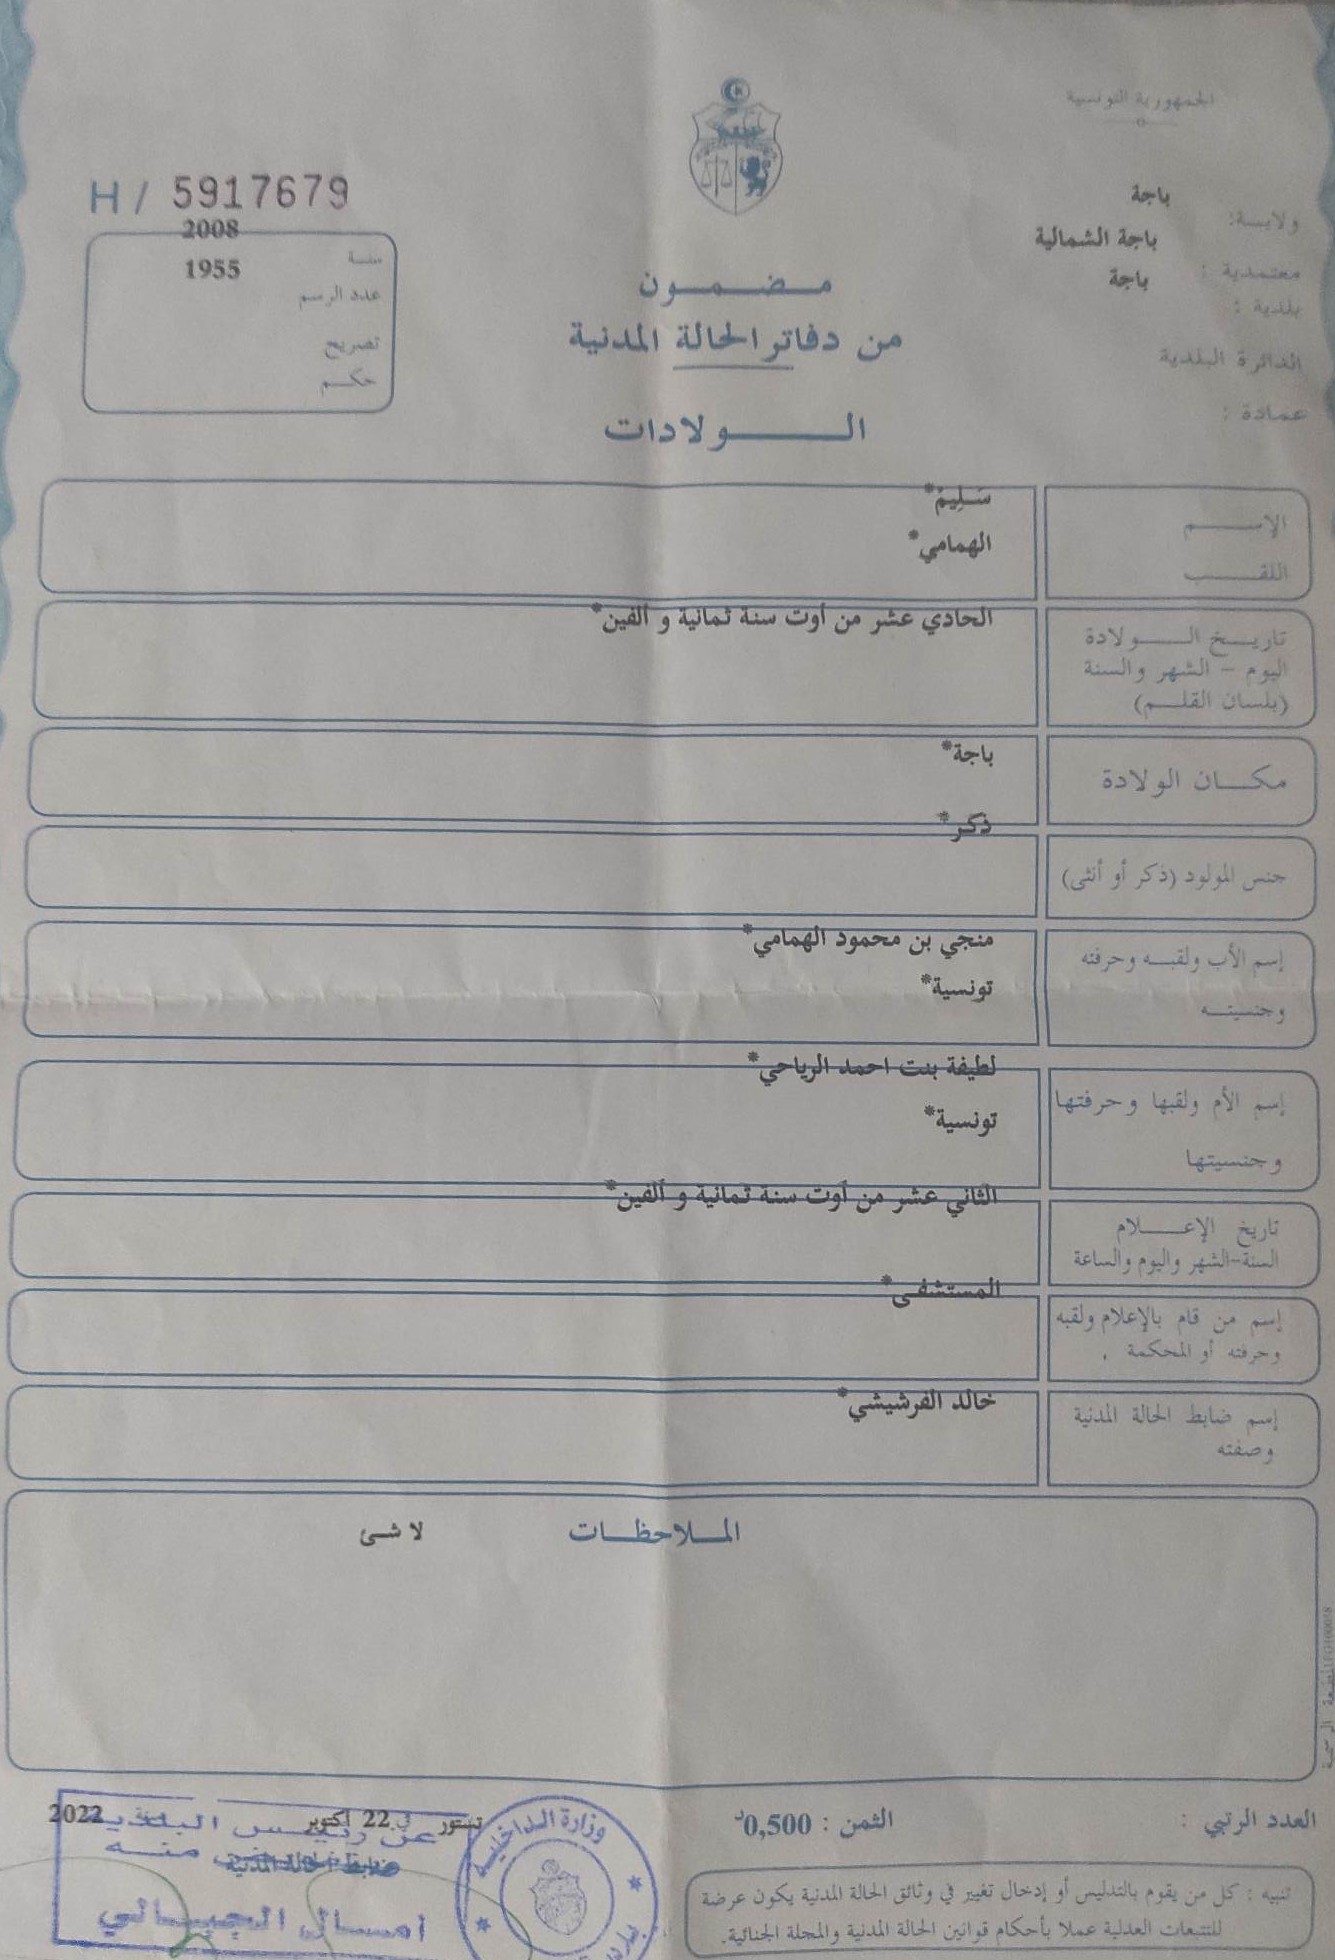 الجمهورية التونسية
ولايــة: باجة
معتمدية : باجة الشمالية
بلدية : باجة
الدائرة البلدية
عمادة :
H / 5917679
سنــة 2008
عدد الرسم 1955
تصريح
حكــم
مــضــمــون
من دفاتر الحالة المدنية
الــــولادات
الإســــم سَـلِيمْ*
اللقـــب الهمامي*
تاريــخ الــــولادة الحادي عشر من أوت سنة ثمانية و ألفين*
اليوم – الشهر والسنة
(بلسان القلــم)
مكــان الولادة باجة*
جنس المولود (ذكر أو أنثى) ذكر*
إسم الأب ولقبــه وحرفته منجي بن محمود الهمامي*
وجنسيتــه تونسية*
إسم الأم ولقبها وحرفتها لطيفة بنت احمد الرياحي*
وجنسيتها تونسية*
تاريخ الإعــــلام الثاني عشر من أوت سنة ثمانية و ألفين*
السنة-الشهر واليوم والساعة
إسم من قام بالإعلام ولقبه المستشفى*
وحرفته أو المحكمة .
إسم ضابط الحالة المدنية خالد الفرشيشي*
وصفته
المــلاحظــات لا شئ
المطبعة الرسمية
العدد الرتبي :
الثمن : 0,500د
تستور في 22 اكتوبر سنة 2022
عن رئيــس البلديــة
منــه
ضابط الحالة المدنية
امســال الجبــالي
وزارة الداخلية
تنبيه : كل من يقوم بالتدليس أو إدخال تغيير في وثائق الحالة المدنية يكون عرضة
للتتبعات العدلية عملا بأحكام قوانين الحالة المدنية والمجلة الجنائية.